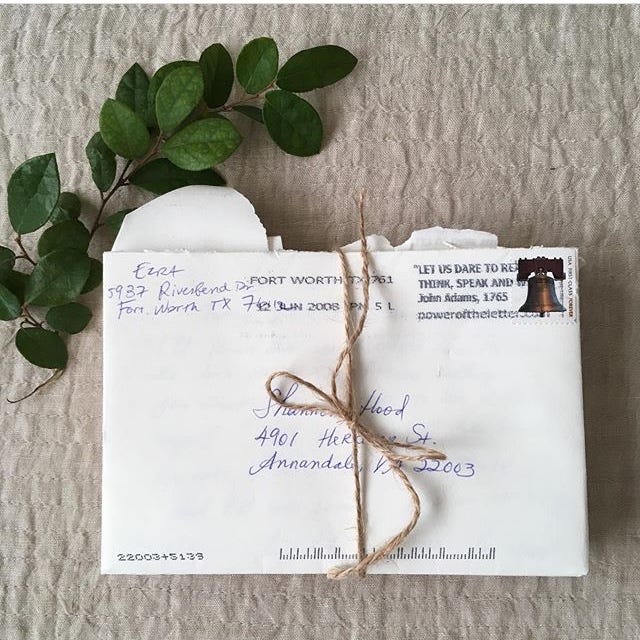 EZRA
5937 Riverbend Dr
Fort Worth TX
FORT WORTH TX 761
12 JUN 2008 PM 5 L
"LET US DARE TO
THINK, SPEAK AND
John Adams, 1765
poweroftheletter
USA FIRST-CLASS FOREVER
Shannon Hood
4901 St.
Annandale, VA 22003
22003+5139